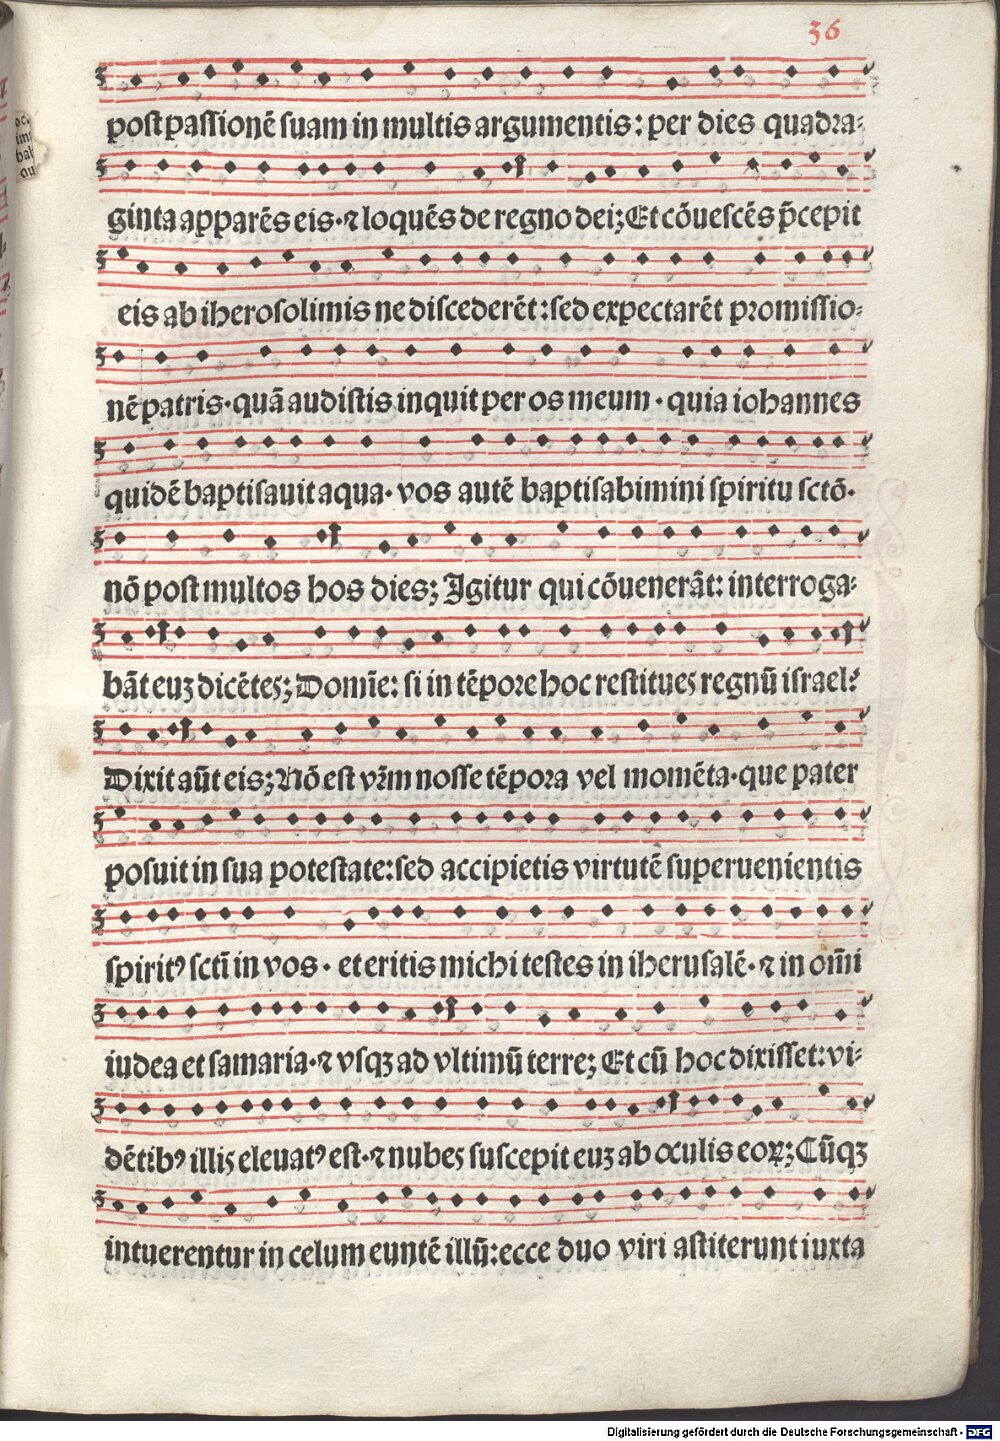 36
post passionē suam in multis argumentis: per dies quadra-
ginta apparēs eis· ⁊ loquēs de regno dei; Et cōuescēs p̄cepit
eis ab iherosolimis ne discederēt: sed expectarēt promissio-
nē patris· quā audistis inquit per os meum· quia iohannes
quidē baptisauit aqua· vos autē baptisabimini spiritu sctō·
nō post multos hos dies; Igitur qui cōuenerāt: interroga-
bāt euꝫ dicētes; Domīe: si in tēpore hoc restitues regnū israel?
Dixit aūt eis; Nō est vr̄m nosse tēpora vel momēta· que pater
posuit in sua potestate: sed accipietis virtutē superuenientis
spiritꝰ sctī in vos· et eritis michi testes in iherusalē· ⁊ in om̄i
iudea et samaria· ⁊ vsqꝫ ad vltimū terre; Et cū hoc dixisset: vi-
dētibꝰ illis eleuatꝰ est· ⁊ nubes suscepit euꝫ ab oculis eoꝝ; Cūqꝫ
intuerentur in celum euntē illū: ecce duo viri astiterunt iuxta
Digitalisierung gefördert durch die Deutsche Forschungsgemeinschaft - DFG